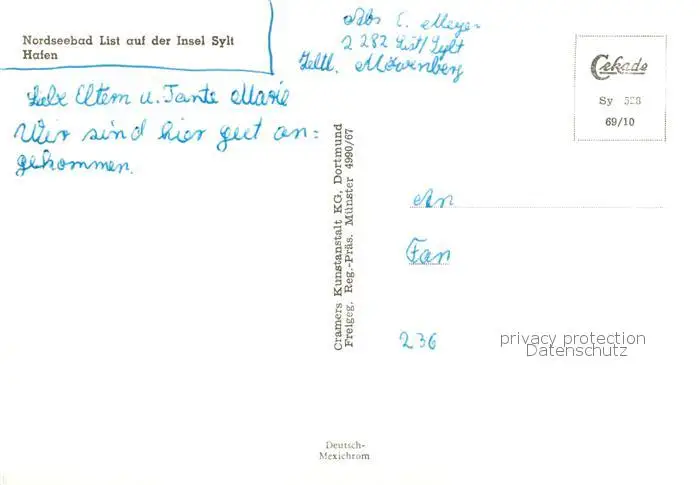 Nordseebad List auf der Insel Sylt
Hafen
Abs E. Meyer
2282 List/Sylt
Zeltl. Möwenberg
Liebe Eltern u. Tante Marie
Wir sind hier gut an=
gekommen.
Cekade
Sy 528
69/10
Cramers Kunstanstalt KG, Dortmund
Freigeg. Reg.-Präs. Münster 4990/67
An
Fam
236
privacy protection
Datenschutz
Deutsch-
Mexichrom